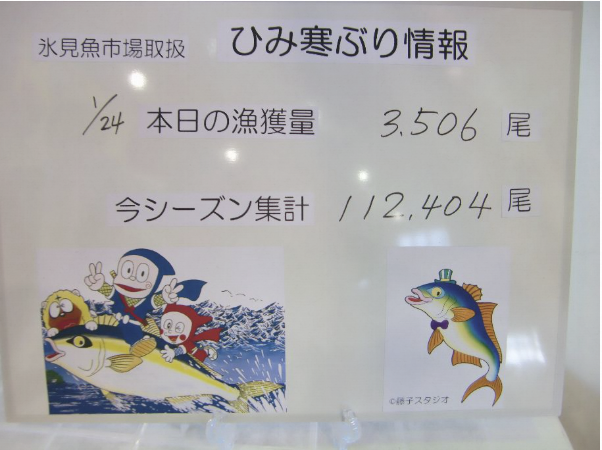 氷見魚市場取扱 ひみ寒ぶり情報
1/24 本日の漁獲量 3.506 尾
今シーズン集計 112,404 尾
©藤子スタジオ